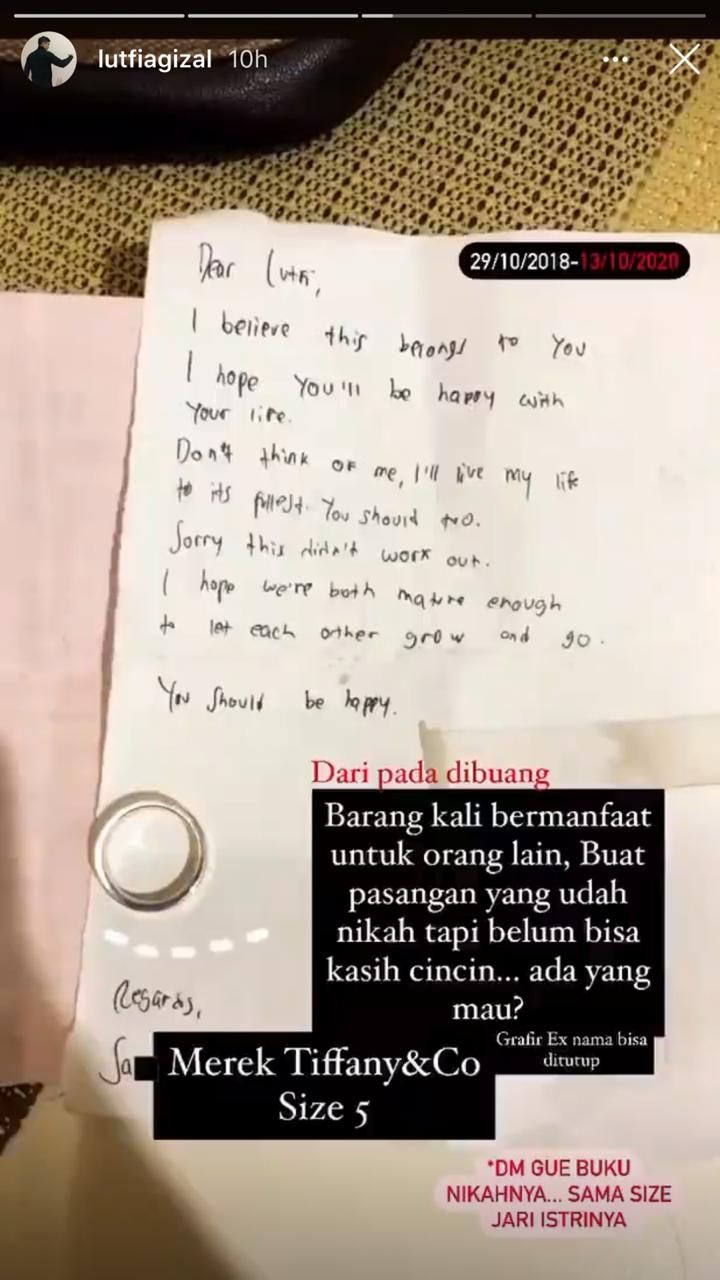 lutfiagizal 10h
29/10/2018-13/10/2020
Dear Lutfi,
I believe this belongs to You
I hope You'll be happy with
Your life.
Don't think of me, I'll live my life
to its fullest. You should too.
Sorry this didn't work out.
I hope we're both mature enough
to let each other grow and go.
You should be happy.
Dari pada dibuang
Barang kali bermanfaat
untuk orang lain, Buat
pasangan yang udah
nikah tapi belum bisa
kasih cincin... ada yang
mau?
Grafir Ex nama bisa
ditutup
Regards,
Sa
Merek Tiffany&Co
Size 5
*DM GUE BUKU
NIKAHNYA... SAMA SIZE
JARI ISTRINYA